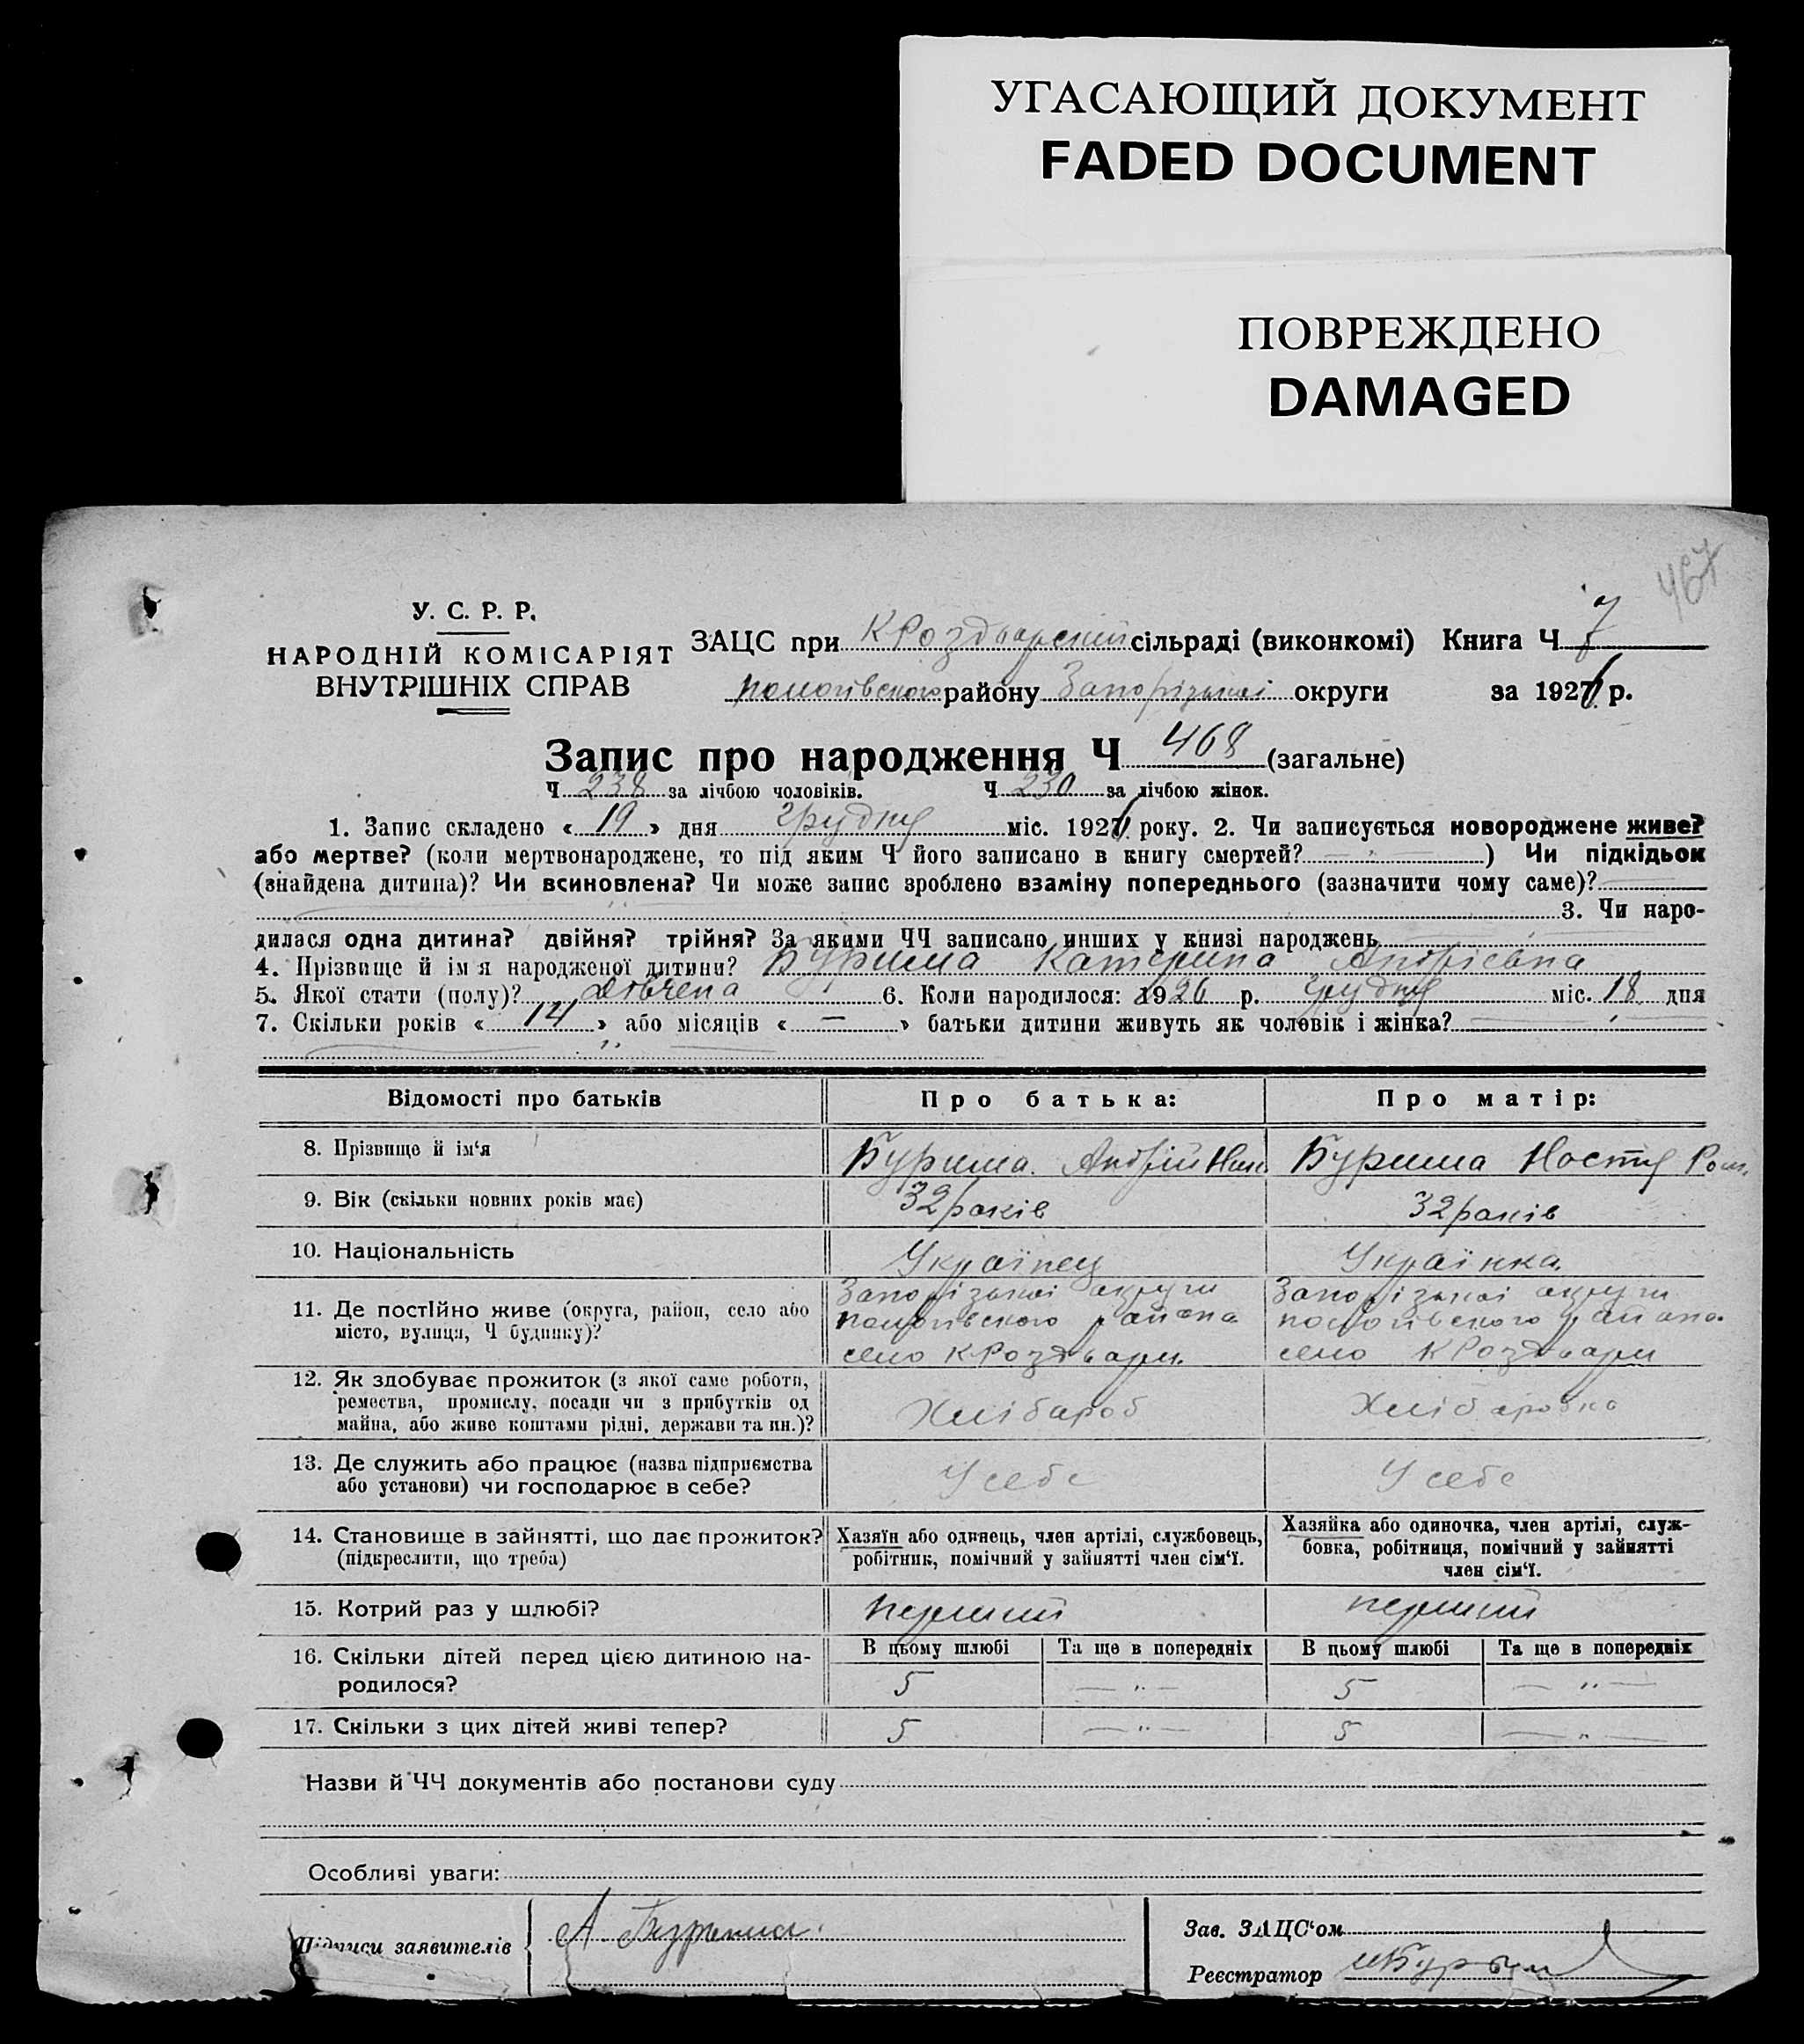 УГАСАЮЩИЙ ДОКУМЕНТ
FADED DOCUMENT
ПОВРЕЖДЕНО
DAMAGED
467
У. С. Р. Р.
НАРОДНІЙ КОМІСАРІЯТ
ВНУТРІШНІХ СПРАВ
ЗАЦС при К Роздорскій сільраді (виконкомі) Книга Ч 7
району Запорізької округи за 1926 р.
Запис про народження Ч 468 (загальне)
Ч 238 за лічбою чоловіків. Ч 230 за лічбою жінок.
1. Запис складено « 19 » дня грудня міс. 1926 року. 2. Чи записується новороджене живе?
або мертве? (коли мертвонароджене, то під яким Ч його записано в книгу смертей? — „ — ) Чи підкідьок
(знайдена дитина)? Чи всиновлена? Чи може запис зроблено взаміну попереднього (зазначити чому саме)?
3. Чи наро-
дилася одна дитина? двійня? трійня? За якими ЧЧ записано инших у книзі народжень
4. Прізвище й ім'я народженої дитини? Бурима Катерина Андрієвна
5. Якої стати (полу)? дівчена 6. Коли народилося: 1926 р. грудня міс. 18 дня
7. Скільки років « 14 » або місяців « — » батьки дитини живуть як чоловік і жінка?
Відомості про батьків Про батька: Про матір:
8. Прізвище й ім'я Бурима Андрій Бурима Настя Ром.
9. Вік (скільки повних років має) 32 років 32 років
10. Національність Українец Українка.
11. Де постійно живе (округа, район, село або
місто, вулиця, Ч будинку)?
Запорізької округи Запорізької округи
района района.
село К Роздори. село К Роздори
12. Як здобуває прожиток (з якої саме роботи,
ремества, промислу, посади чи з прибутків од
майна, або живе коштами рідні, держави та ин.)?
Хлібароб Хлібаробка
13. Де служить або працює (назва підприємства
або установи) чи господарює в себе?
У себе У себе
14. Становище в зайнятті, що дає прожиток?
(підкреслити, що треба)
Хазяїн або одинець, член артілі, службовець,
робітник, помічний у зайнятті член сім'ї.
Хазяйка або одиночка, член артілі, служ-
бовка, робітниця, помічний у зайнятті
член сім'ї.
15. Котрий раз у шлюбі? перший перший
16. Скільки дітей перед цією дитиною на-
родилося?
В цьому шлюбі Та ще в попередніх В цьому шлюбі Та ще в попередніх
5 — „ — 5 — „ —
17. Скільки з цих дітей живі тепер? 5 — „ — 5 — „ —
Назви й ЧЧ документів або постанови суду
Особливі уваги:
Підписи заявителів А. Бурима.
Зав. ЗАЦС'ом
Реєстратор